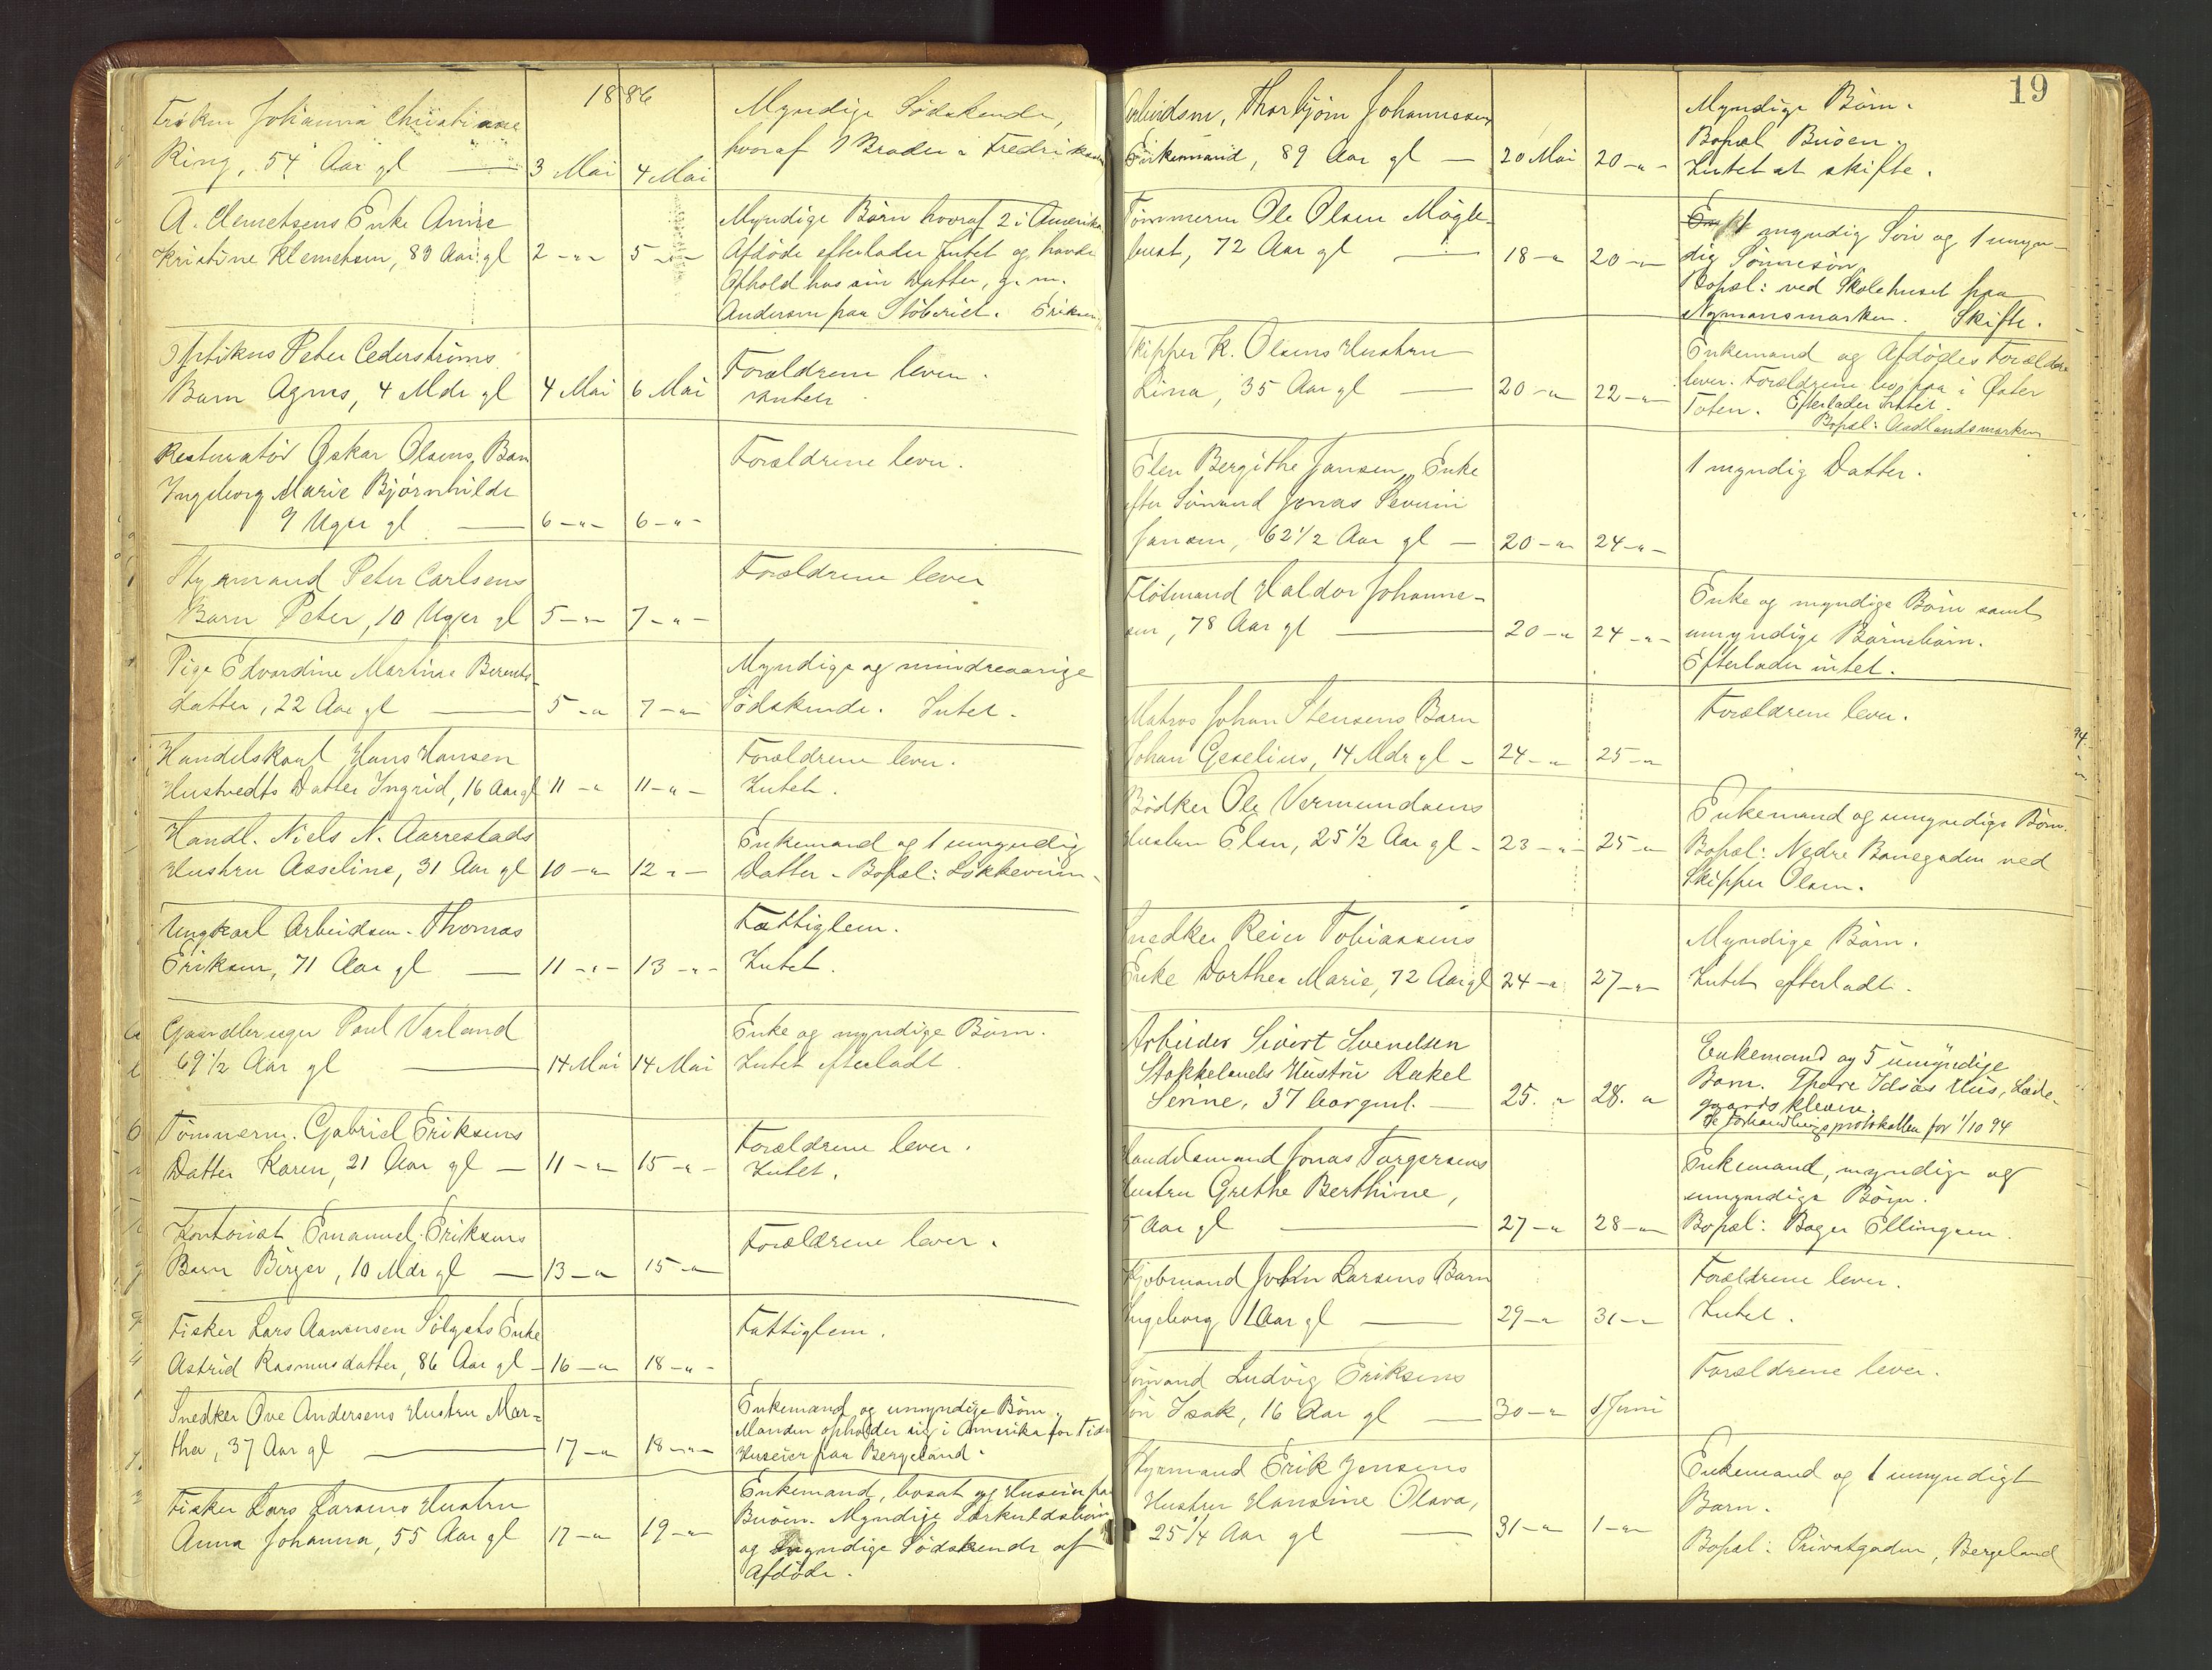 1886
Frøken Johanna Christiane
Ring, 54 Aar gl — 3 Mai 4 Mai
Myndige Sødskende,
hvoraf 1 Broder i Fredriks
A. Clemetsens Enke Anne
Kristine Klemetsen, 83 Aar gl 2 —"— 5 —"—
Myndige Børn hvoraf 2 i Amerika
Afdøde efterlader Intet og havde
Ophold hos sin Datter, g. m.
Andersen paa Støberiet. Eriksen
Optikus Peter Cederstrøms
Barn Agnes, 4 Mdr gl 4 Mai 6 Mai
Forældrene lever.
Intet
Restauratør Oskar Olsens Barn
Ingeborg Marie Bjørnhilde
9 Uger gl — 6 —"— 6 —"—
Forældrene lever.
Styrmand Peter Carlsens
Barn Peter, 10 Uger gl 5 —"— 7 —"—
Forældrene lever
Pige Edvardine Martine Berents
datter, 22 Aar gl — 5 —"— 7 —"—
Myndige og mindreaarige
Sødskende. Intet.
Handelskarl Hans Hansen
Hustvedts Datter Ingrid, 16 Aar gl 11 —"— 11 —"—
Forældrene lever.
Intet.
Handl. Niels N. Aarrestads
Hustru Asseline, 31 Aar gl 10 —"— 12 —"—
Enkemand og 1 umyndig
Datter. Bopæl: Løkkeveien.
Ungkarl Arbeidsm. Thomas
Eriksen, 71 Aar gl — 11 —"— 13 —"—
Fattiglem.
Intet.
Gaardbruger Poul Varland
69 1/2 Aar gl — 14 Mai 14 Mai
Enke og myndige Børn.
Intet efterladt
Tømmerm. Gabriel Eriksens
Datter Karen, 21 Aar gl — 11 —"— 15 —"—
Forældrene lever.
Intet.
Kontorist Emanuel Eriksens
Barn Birger, 10 Mdr gl — 13 —"— 15 —"—
Forældrene lever.
Fisker Lars Aanensen Enke
Astrid Rasmusdatter, 86 Aar gl — 16 —"— 18 —"—
Fattiglem.
Snedker Ove Andersens Hustru Mar=
tha, 37 Aar gl — 17 —"— 18 —"—
Enkemand og umyndige Børn.
Manden opholder sig i Amerika for Tiden
Huseier paa Bergeland.
Fisker Lars Larsens Hustru
Anna Johanna, 55 Aar gl 17 —"— 19 —"—
Enkemand, bosat og Huseier paa
Buøen. Myndige Særkuldsbørn
og myndige Sødskende af
Afdøde.
19
Arbeidsm, Thorbjørn Johannessen
Enkemand, 89 Aar gl — 20 Mai 20 —"—
Myndige Børn.
Bopæl Buøen.
Intet at skifte.
Tømmerm Ole Olsen Møgle-
bust, 72 Aar gl — 18 —"— 20 —"—
myndig Søn og 1 umyn-
dig Sønnesøn.
Bopæl: ved Skolehuset paa
Nymansmarken. Skifte.
Skipper K. Olsens Hustru
Lina, 35 Aar gl — 20 —"— 22 —"—
Enkemand og Afdødes Forældre
lever. Forældrene bor paa i Øster
Toten. Efterlader Intet.
Bopæl: Aadlandsmarken
Elen Bergithe Jansen, Enke
efter Sømand Jonas Severin
Jansen, 62 1/2 Aar gl — 20 —"— 24 —"—
1 myndig Datter.
Fløtmand Haldor Johanne-
sen, 78 Aar gl — 20 —"— 24 —"—
Enke og myndige Børn samt
umyndige Børnebørn.
Efterlader intet.
Matros Johan Stensens Barn
Johan Geselius, 14 Mdr gl — 24 —"— 25 —"—
Forældrene lever.
Bødker Ole Vermundsens
Hustru Elen, 25 1/2 Aar gl — 23 —"— 25 —"—
Enkemand og umyndige Børn.
Bopæl: Nedre Banegaden ved
Skipper Olsen.
Snedker Reier Tobiassens
Enke Dorthea Marie, 72 Aar gl 24 —"— 27 —"—
Myndige Børn.
Intet efterladt.
Arbeider Sivert Svendsen
Stokkelands Hustru Rakel
Serine, 37 Aar gml. — 25. " 28. "
Enkemand og 5 umyndige
Børn. Thore Idsøs Hus, Lade-
gaardskleven.
Se Forhandlingsprotokollen for 1/10 94
Handelsmand Jonas Torgersens
Hustru Grethe Berthine,
Aar gl — 27 —"— 28 —"—
Enkemand, myndige og
umyndige Børn.
Bopæl: Bager Ellingsen.
Kjøbmand John Larsens Barn
Ingeborg 1 Aar gl — 29 —"— 31 —"—
Forældrene lever.
Intet.
Sømand Ludvig Eriksens
Søn Isak, 16 Aar gl — 30 —"— 1 Juni
Forældrene lever.
Styrmand Erik Jensens
Hustru Hansine Olava,
25 1/4 Aar gl — 31 —"— 1 —"—
Enkemand og 1 umyndigt
Barn.
Bopæl: Privatgaden, Bergeland